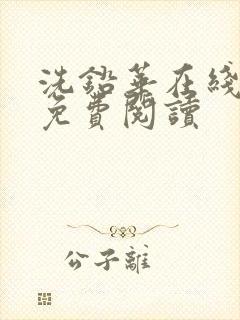 洗鉛華在綫
免費閱讀
公子離